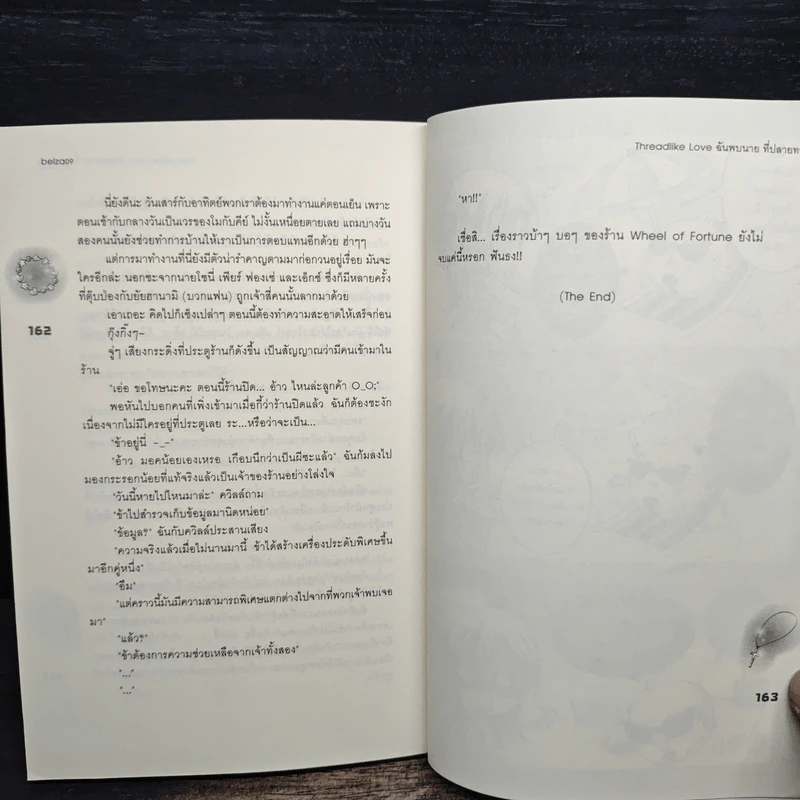 belza09
นี่ยังดีนะ วันเสาร์กับอาทิตย์พวกเราต้องมาทำงานแค่ตอนเย็น เพราะ
ตอนเช้ากับกลางวันเป็นเวรของโมกับคีย์ ไม่งั้นเหนื่อยตายเลย แถมบางวัน
สองคนนั้นยังช่วยทำการบ้านให้เราเป็นการตอบแทนอีกด้วย ฮ่าๆๆ
แต่การมาทำงานที่นี่ยังมีตัวน่ารำคาญตามมาก่อกวนอยู่เรื่อย มันจะ
ใครอีกล่ะ นอกซะจากนายโซนี่ เพียร์ ฟองเซ่ และเอ็กซ์ ซึ่งก็มีหลายครั้ง
ที่ตุ๊บป่องกับยัยฮานามิ (บวกแฟน) ถูกเจ้าสี่คนนั้นลากมาด้วย
เอาเถอะ คิดไปก็เซ็งเปล่าๆ ตอนนี้ต้องทำความสะอาดให้เสร็จก่อน
กุ๊งกิ๊งๆ~
จู่ๆ เสียงกระดิ่งที่ประตูร้านก็ดังขึ้น เป็นสัญญาณว่ามีคนเข้ามาใน
ร้าน
"เอ่อ ขอโทษนะคะ ตอนนี้ร้านปิด... อ้าว ไหนล่ะลูกค้า O_O;"
พอหันไปบอกคนที่เพิ่งเข้ามาเมื่อกี้ว่าร้านปิดแล้ว ฉันก็ต้องชะงัก
เนื่องจากไม่มีใครอยู่ที่ประตูเลย ระ...หรือว่าจะเป็น...
"ข้าอยู่นี่ -_-"
"อ้าว มอคน้อยเองเหรอ เกือบนึกว่าเป็นผีซะแล้ว" ฉันก้มลงไป
มองกระรอกน้อยที่แท้จริงแล้วเป็นเจ้าของร้านอย่างโล่งใจ
"วันนี้หายไปไหนมาล่ะ" ควิลล์ถาม
"ข้าไปสำรวจเก็บข้อมูลมานิดหน่อย"
"ข้อมูล?" ฉันกับควิลล์ประสานเสียง
"ความจริงแล้วเมื่อไม่นานมานี้ ข้าได้สร้างเครื่องประดับพิเศษขึ้น
มาอีกคู่หนึ่ง"
"อืม"
"แต่คราวนี้มันมีความสามารถพิเศษแตกต่างไปจากที่พวกเจ้าพบเจอ
มา"
"แล้ว?"
"ข้าต้องการความช่วยเหลือจากเจ้าทั้งสอง"
"..."
"..."
162
Threadlike Love ฉันพบนาย ที่ปลาย
"หา!!"
เชื่อสิ... เรื่องราวบ้าๆ บอๆ ของร้าน Wheel of Fortune ยังไม่
จบแค่นี้หรอก ฟันธง!!
(The End)
163